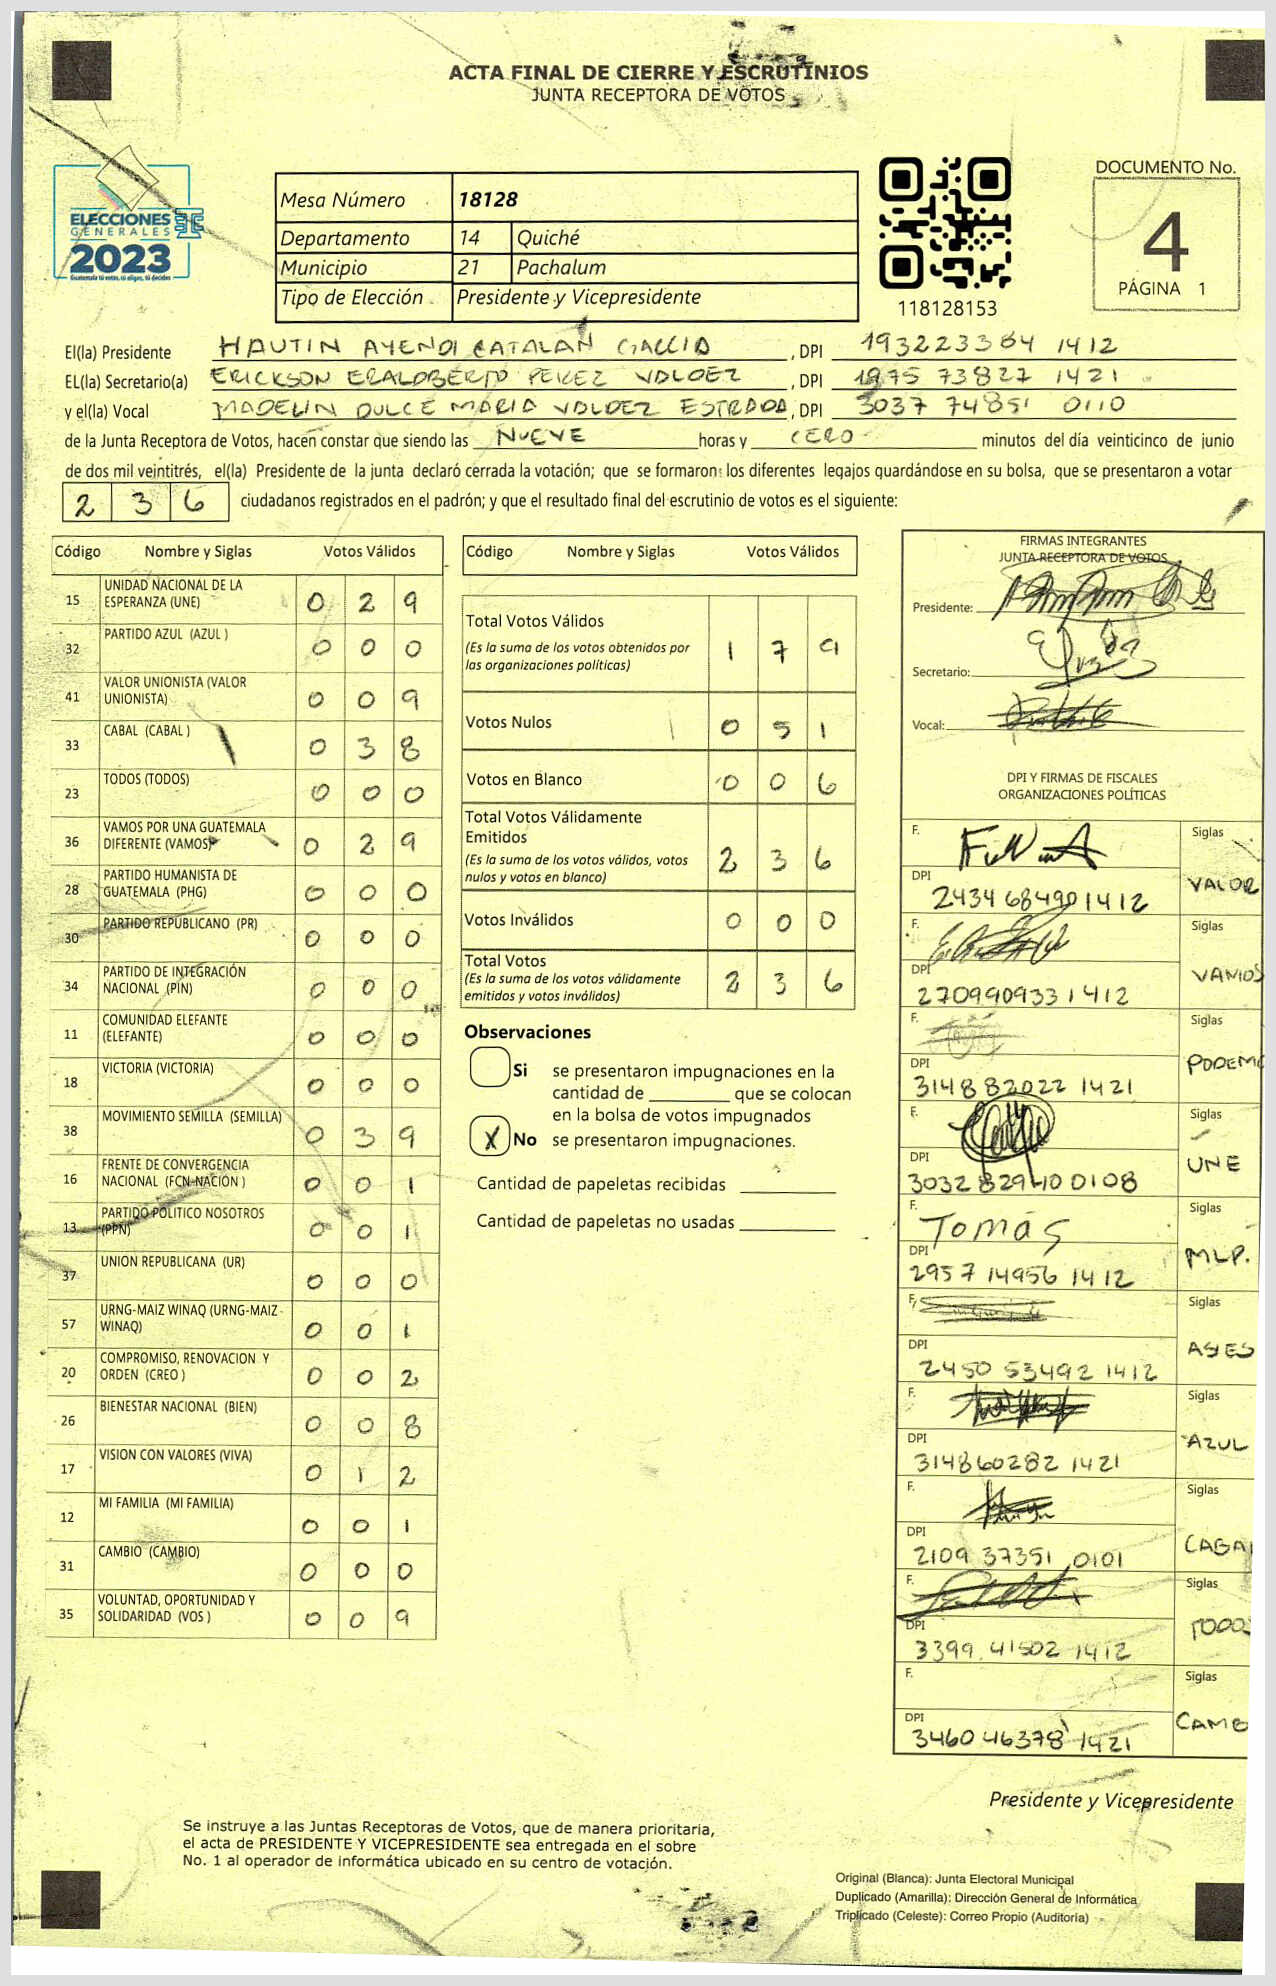 ACTA FINAL DE CIERRE Y ESCRUTINIOS
JUNTA RECEPTORA DE VOTOS
ELECCIONES
GENERALES
2023
Guatemala tú votas, tú eliges, tú decides
Mesa Número 18128
Departamento 14 Quiché
Municipio 21 Pachalum
Tipo de Elección Presidente y Vicepresidente
118128153
DOCUMENTO No.
4
PÁGINA 1
El(la) Presidente HAUTIN AYENDI CATALAN GARCIA, DPI 193223364 1412
EL(la) Secretario(a) ERICKSON ERALDBERTO PEREZ VALDEZ, DPI 1975 73827 1421
y el(la) Vocal MADELIN DULCE MARIA VALDEZ ESTRADA, DPI 3037 74851 0110
de la Junta Receptora de Votos, hacen constar que siendo las NUEVE horas y CERO minutos del día veinticinco de junio
de dos mil veintitrés, el(la) Presidente de la junta declaró cerrada la votación; que se formaron los diferentes legajos quardándose en su bolsa, que se presentaron a votar
2 3 6 ciudadanos registrados en el padrón; y que el resultado final del escrutinio de votos es el siguiente:
Código Nombre y Siglas Votos Válidos
15 UNIDAD NACIONAL DE LA ESPERANZA (UNE) 0 2 9
32 PARTIDO AZUL (AZUL ) 0 0 0
41 VALOR UNIONISTA (VALOR UNIONISTA) 0 0 9
33 CABAL (CABAL ) 0 3 8
23 TODOS (TODOS) 0 0 0
36 VAMOS POR UNA GUATEMALA DIFERENTE (VAMOS) 0 2 9
28 PARTIDO HUMANISTA DE GUATEMALA (PHG) 0 0 0
30 PARTIDO REPUBLICANO (PR) 0 0 0
34 PARTIDO DE INTEGRACIÓN NACIONAL (PIN) 0 0 0
11 COMUNIDAD ELEFANTE (ELEFANTE) 0 0 0
18 VICTORIA (VICTORIA) 0 0 0
38 MOVIMIENTO SEMILLA (SEMILLA) 0 3 9
16 FRENTE DE CONVERGENCIA NACIONAL (FCN-NACION ) 0 0 1
13 PARTIDO POLITICO NOSOTROS (PPN) 0 0 1
37 UNION REPUBLICANA (UR) 0 0 0
57 URNG-MAIZ WINAQ (URNG-MAIZ - WINAQ) 0 0 1
20 COMPROMISO, RENOVACION Y ORDEN (CREO ) 0 0 2
26 BIENESTAR NACIONAL (BIEN) 0 0 8
17 VISION CON VALORES (VIVA) 0 1 2
12 MI FAMILIA (MI FAMILIA) 0 0 1
31 CAMBIO (CAMBIO) 0 0 0
35 VOLUNTAD, OPORTUNIDAD Y SOLIDARIDAD (VOS ) 0 0 9
Código Nombre y Siglas Votos Válidos
Total Votos Válidos 1 7 9
(Es la suma de los votos obtenidos por
las organizaciones políticas)
Votos Nulos 0 5 1
Votos en Blanco 0 0 6
Total Votos Válidamente
Emitidos 2 3 6
(Es la suma de los votos válidos, votos
nulos y votos en blanco)
Votos Inválidos 0 0 0
Total Votos
(Es la suma de los votos válidamente
emitidos y votos inválidos) 2 3 6
Observaciones
Si se presentaron impugnaciones en la
cantidad de que se colocan
en la bolsa de votos impugnados
X No se presentaron impugnaciones.
Cantidad de papeletas recibidas
Cantidad de papeletas no usadas
FIRMAS INTEGRANTES
JUNTA RECEPTORA DE VOTOS
Presidente:
Secretario:
Vocal:
DPI Y FIRMAS DE FISCALES
ORGANIZACIONES POLÍTICAS
F. Siglas
DPI VALOR
2434 68490 1412
F. Siglas
DPI VAMOS
270990933 1412
F. Siglas
DPI PODEMO
3148 82022 1421
F. Siglas
DPI UNE
3032 82940 0108
F. Tomás Siglas
DPI MLP.
2957 14956 1412
F. Siglas
DPI
2450 53492 1412
F. Siglas
DPI AZUL
314860282 1421
F. Siglas
DPI CABAL
2109 37351 0101
F. Siglas
DPI TODOS
3399 41502 1412
F. Siglas
DPI CAMB
3460 46378 1421
Presidente y Vicepresidente
Se instruye a las Juntas Receptoras de Votos, que de manera prioritaria,
el acta de PRESIDENTE Y VICEPRESIDENTE sea entregada en el sobre
No. 1 al operador de informática ubicado en su centro de votación.
Original (Blanca): Junta Electoral Municipal
Duplicado (Amarilla): Dirección General de Informática
Triplicado (Celeste): Correo Propio (Auditoría)